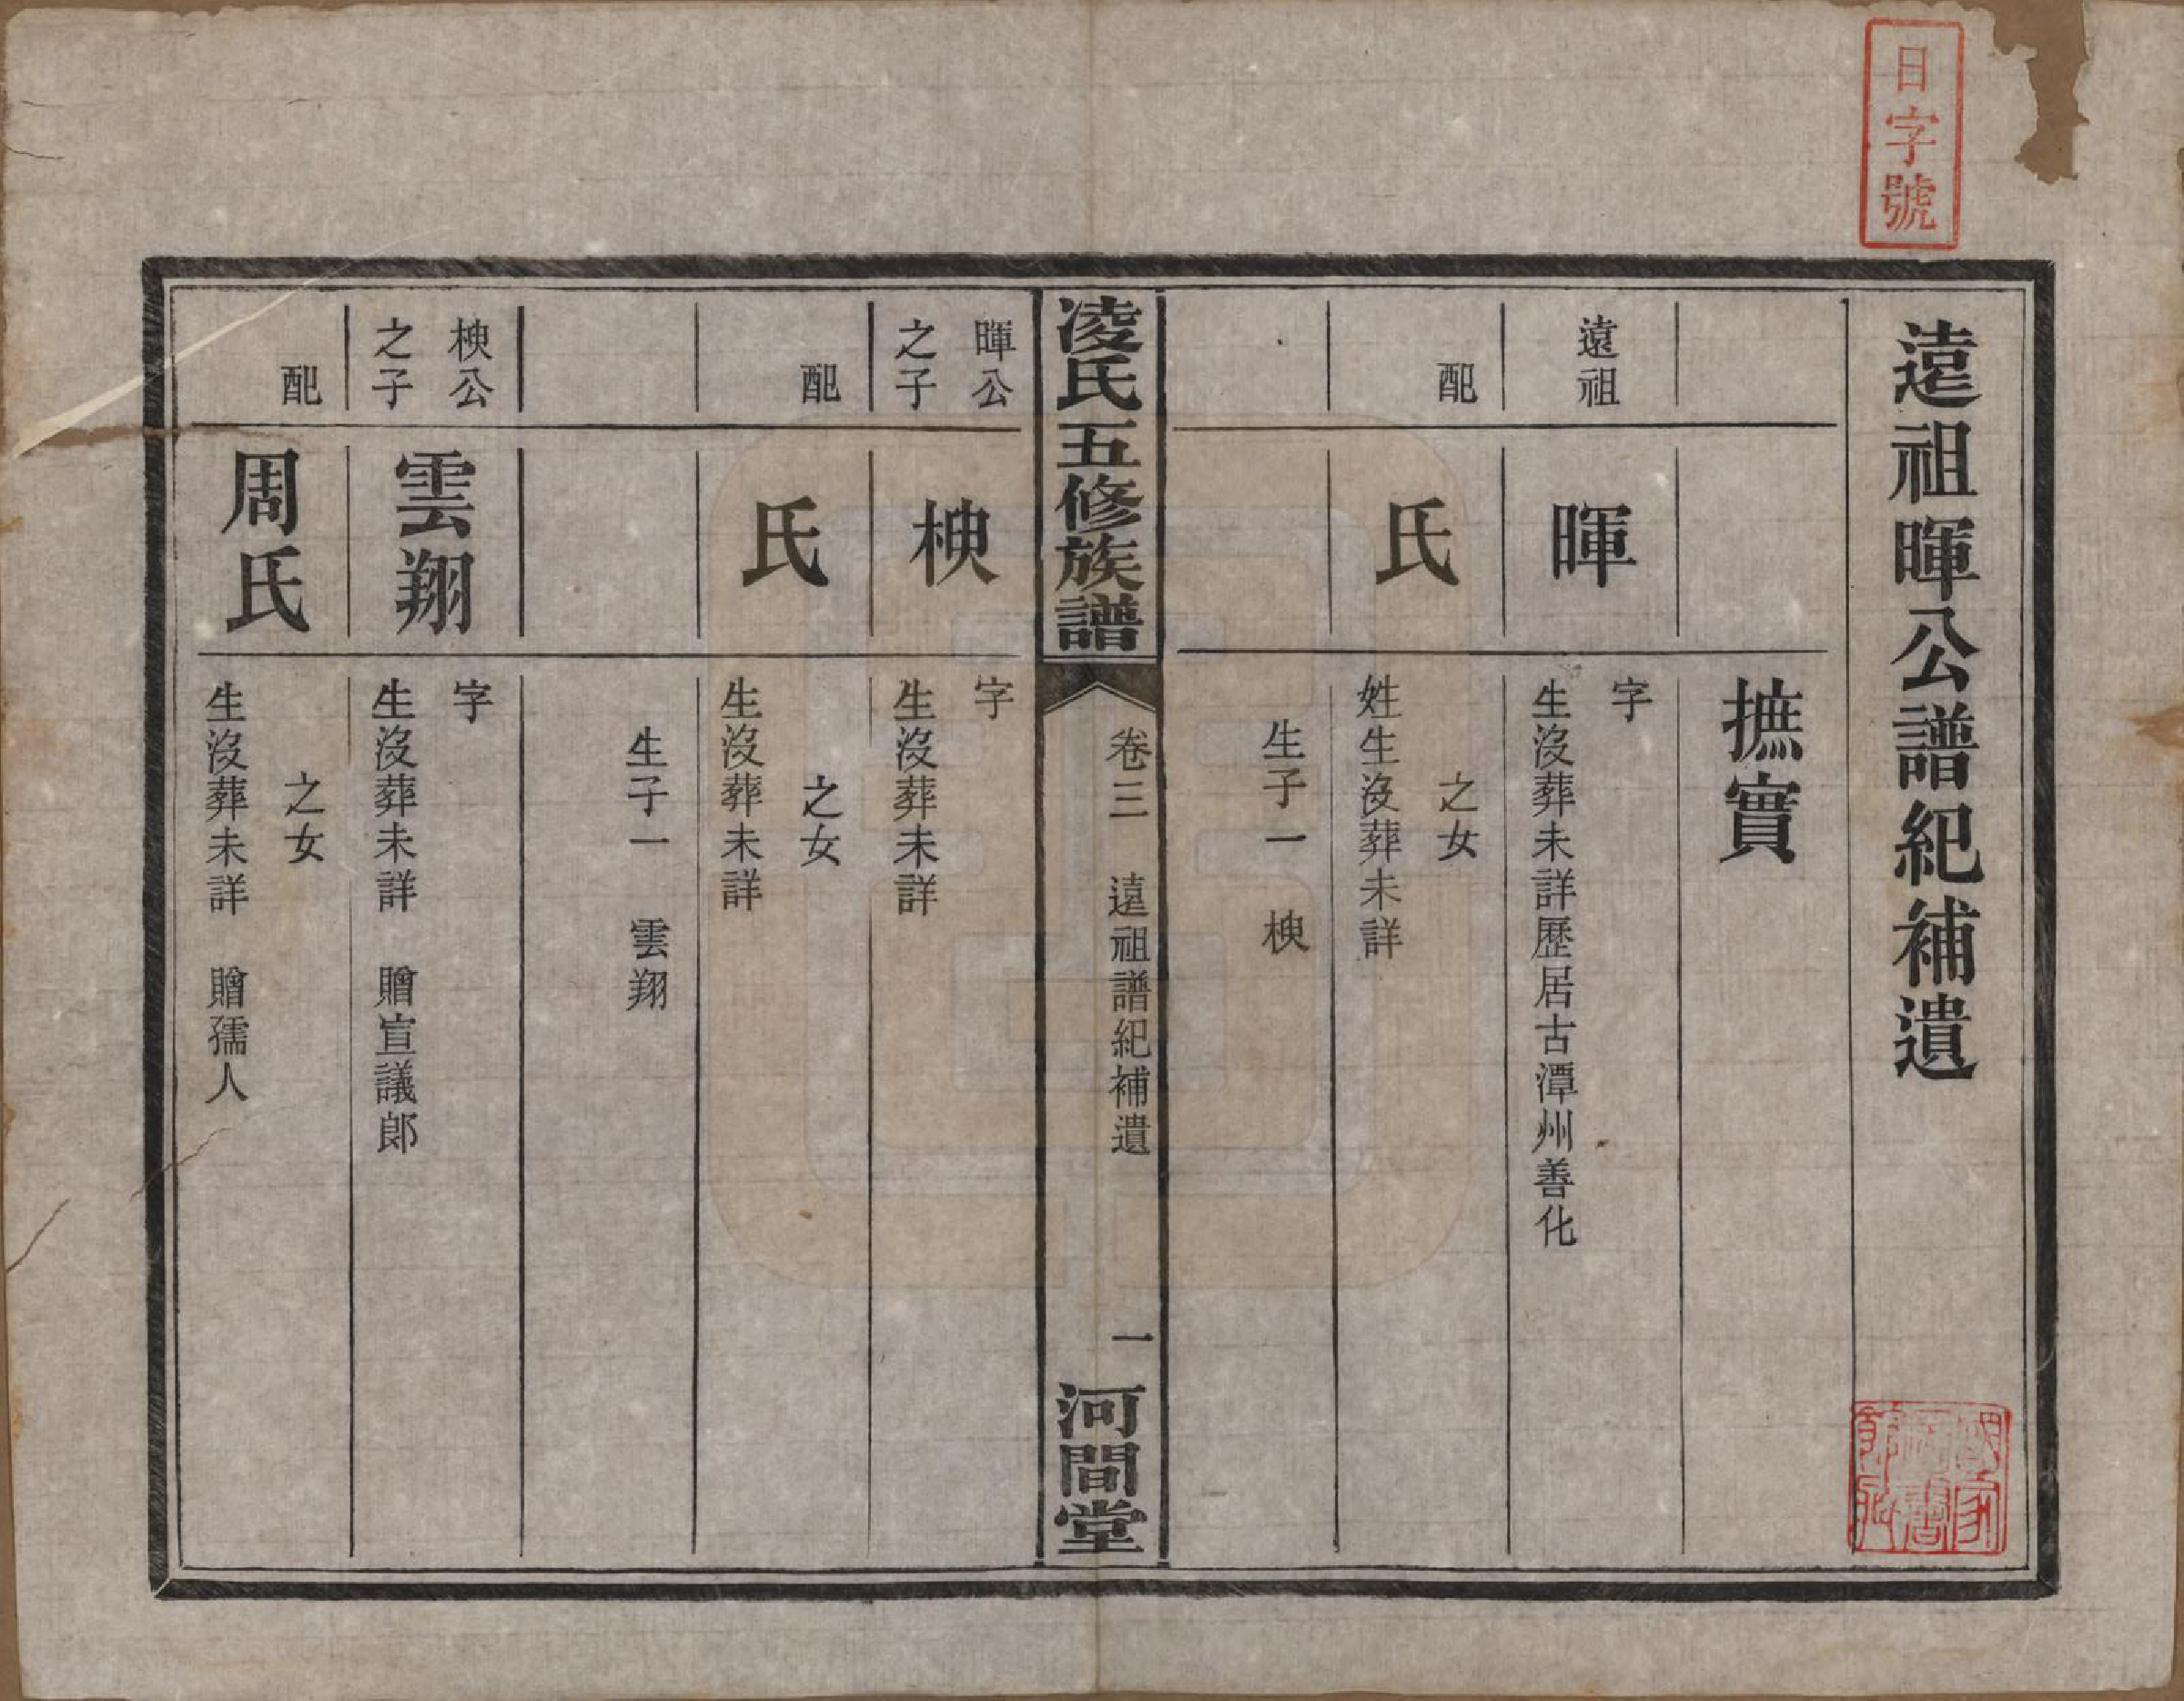 日字號
遠祖暉公譜紀補遺
摭實
遠祖
暉
字
生沒葬未詳歷居古潭州善化
配
氏
之女
姓生沒葬未詳
生子一 㭌
凌氏五修族譜
卷三 遠祖譜紀補遺
一
河間堂
暉公
之子
㭌
字
生沒葬未詳
配
氏
之女
生沒葬未詳
生子一 雲翔
㭌公
之子
雲翔
字
生沒葬未詳 贈宣議郎
配
周氏
之女
生沒葬未詳 贈孺人